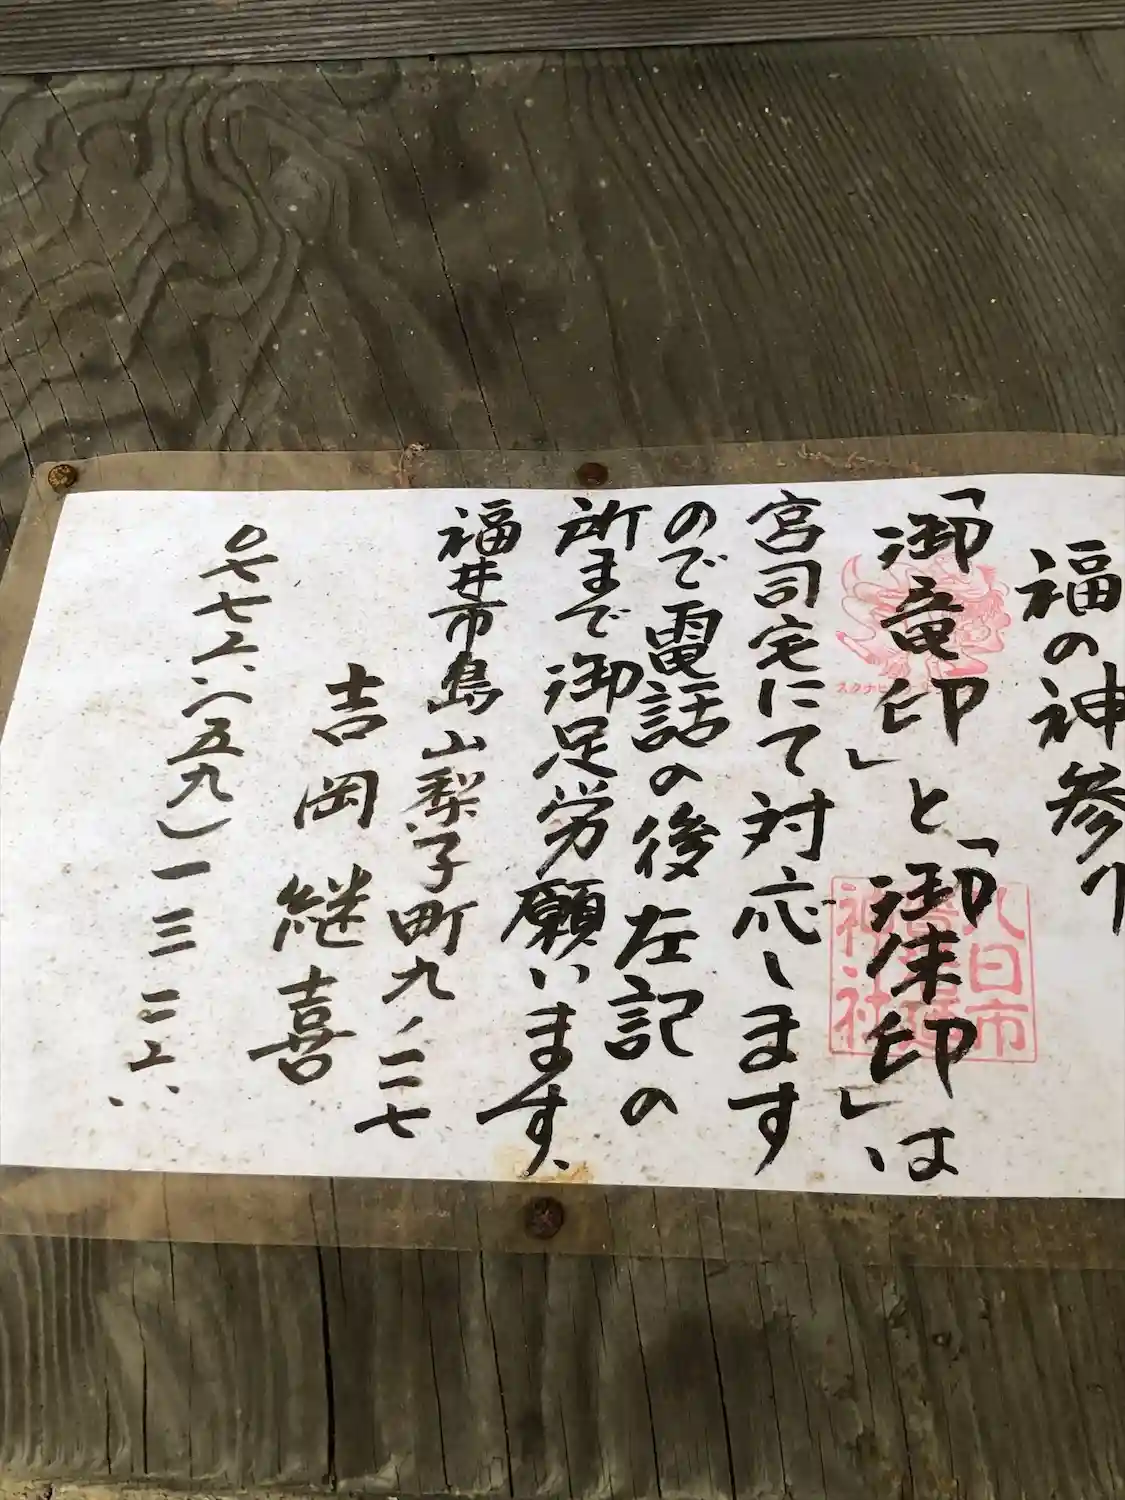 福の神参り
「御竜印」と「御朱印」は、
宮司宅にて対応します
ので電話の後左記の
所まで御足労願います、
福井市島山梨子町九ノ二七
吉岡継喜
九日市
神社